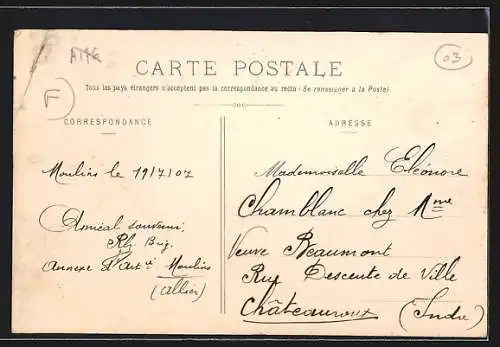 03
F
CARTE POSTALE
Tous les pays étrangers n'acceptent pas la correspondance au recto (Se renseigner à la Poste)
CORRESPONDANCE
ADRESSE
Moulins le 19/7/07
Amical souvenir.
Brig.
Annexe d'Art<sup>ie</sup> Moulins
(Allier)
Mademoiselle Eléonore
Chamblanc chez Mme
Veuve Beaumont
Rue Descente de Ville
Châteauroux (Indre)